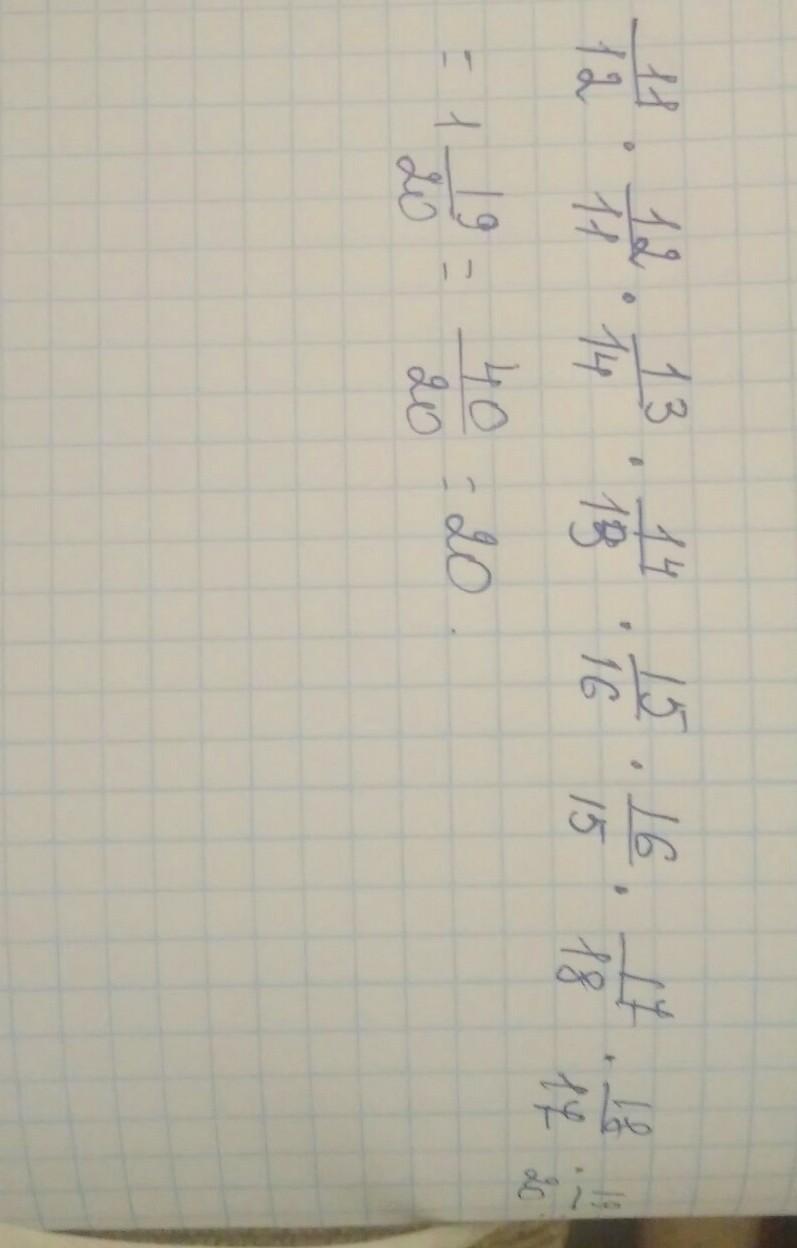 11/12 · 12/11 · 13/14 · 14/13 · 15/16 · 16/15 · 17/18 · 18/17 · 19/20
= 1 19/20 = 40/20 = 20.